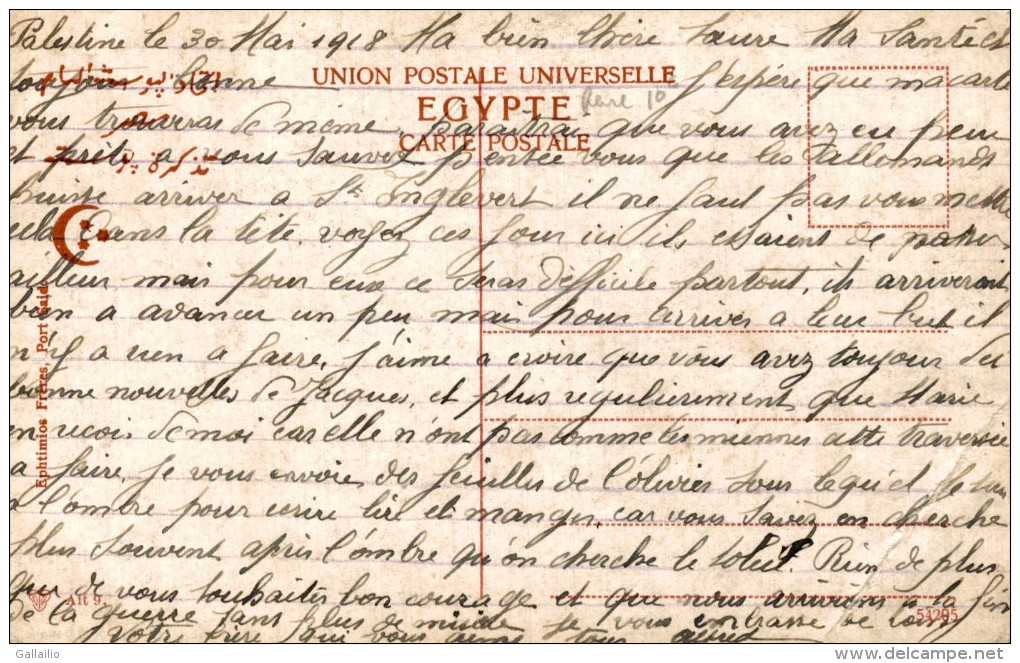 Palestine le 30 Mai 1918 Ma bien chère Laure Ma Santé est
toujours bonne J'espère que ma carte
UNION POSTALE UNIVERSELLE
EGYPTE
CARTE POSTALE
vous trouveras de même, paraitrai que vous avez eu peur
et prêts a vous sauvez pensée vous que les allemands
puisse arriver a St Inglevert il ne faut pas vous mettre
cela dans la tête, voyez ces jour ici ils essaient de passer
ailleur, mais pour eux ce seras difficile partout, ils arriveront
bien a avancer un peu mais pour arriver a leur but il
n'y a rien a faire, j'aime a croire que vous avez toujour des
bonne nouvelles de Jacques, et plus regulierement que Marie
en recois de moi car elle n'ont pas comme les miennes cette traversée
a faire, Je vous envoie des feuilles de l'olivier sous lequel je suis
a l'ombre pour ecrire lire et manger, car vous savez on cherche
plus souvent apres l'ombre qu'on cherche le soleil. Rien de plus
que de vous souhaiter bon courage et que nous arrivions a la fin
de la guerre sans plus de misère Je vous embrasse de loin
Votre frère qui vous aime tous
Ephtimios Frères, Port Said
Alt 9.
54295
Gallailio
delcampe.net